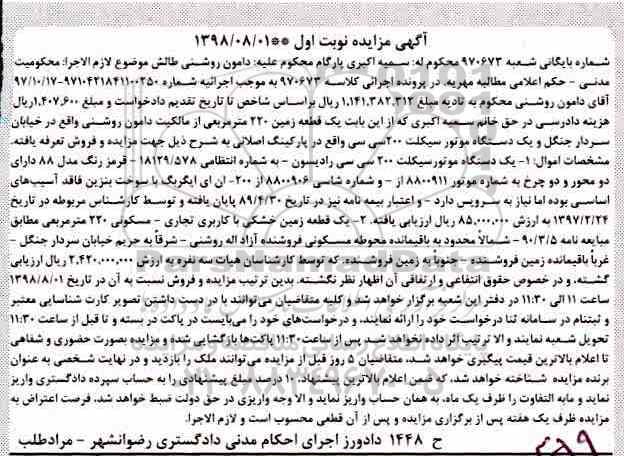 آگهی مزایده نوبت اول **۱۳۹۸/۰۸/۰۱
شماره بایگانی شعبه ۹۷۰۶۷۳ محکوم له: سمیه اکبری پارگام محکوم علیه: دامون روشنی طالش موضوع لازم الاجرا: محکومیت
مدنی - حکم اعلامی مطالبه مهریه. در پرونده اجرائی کلاسه ۹۷۰۶۷۳ به موجب اجرائیه شماره ۹۷۱۰۴۲۱۸۴۱۱۰۰۲۵۰-۹۷/۱۰/۱۷
آقای دامون روشنی محکوم به تادیه مبلغ ۱,۱۴۱,۳۸۲,۳۱۲ ریال براساس شاخص تا تاریخ تقدیم دادخواست و مبلغ ۱,۴۰۷,۶۰۰ریال
هزینه دادرسی در حق خانم سمیه اکبری که از این بابت یک قطعه زمین ۲۲۰ مترمربعی از مالکیت دامون روشنی واقع در خیابان
سردار جنگل و یک دستگاه موتور سیکلت ۲۰۰سی سی واقع در پارکینگ اصلانی به شرح ذیل جهت مزایده و فروش تعرفه یافته.
مشخصات اموال: ۱- یک دستگاه موتورسیکلت ۲۰۰ سی سی رادیسون - به شماره انتظامی ۱۸۱۲۹/۵۷۸ - قرمز رنگ مدل ۸۸ دارای
دو محور و دو چرخ به شماره موتور ۸۸۰۰۹۱۱ از - و شماره شاسی ۸۸۰۰۹۰۶ از ۲۰۰- ان ای ایگربگ با سوخت بنزین فاقد آسیب‌های
اساسی بوده اما نیاز به سرویس دارد - و اعتبار بیمه نامه نیز در تاریخ ۸۹/۴/۳۰ پایان یافته و توسط کارشناس مربوطه در تاریخ
۱۳۹۷/۲/۲۴ به ارزش ۸۵,۰۰۰,۰۰۰ ریال ارزیابی یافته. ۲- یک قطعه زمین خشکی با کاربری تجاری - مسکونی ۲۲۰ مترمربعی مطابق
مبایعه نامه ۹۰/۳/۵ - شمالاً محدود به باقیمانده محوطه مسکونی فروشنده آزاد اله روشنی - شرقاً به حریم خیابان سردار جنگل -
غرباً باقیمانده زمین فروشنده - جنوباً به زمین فروشنده. که توسط کارشناسان هیات سه نفره به ارزش ۲,۴۲۰,۰۰۰,۰۰۰ ریال ارزیابی
گشته. و در خصوص حقوق انتفاعی و ارتفاقی آن اظهار نظر نگشته. بدین ترتیب مزایده و فروش نسبت به آن در تاریخ ۱۳۹۸/۸/۰۱
ساعت ۱۱ الی ۱۱:۳۰ در دفتر این شعبه برگزار خواهد شد و کلیه متقاضیان می‌توانند با در دست داشتن تصویر کارت شناسایی معتبر
و ثبتنام در سامانه ثنا درخواست خود را ارائه نمایند. و درخواست‌های خود را می‌بایست در پاکت در بسته و تا قبل از ساعت ۱۱:۳۰
تحویل شعبه نمایند و الا ترتیب اثر داده نخواهد شد. پس از ساعت ۱۱:۳۰ پاکت‌ها بازگشایی شده و مزایده بصورت حضوری و شفاهی
تا اعلام بالاترین قیمت پیگیری خواهد شد. متقاضیان ۵ روز قبل از مزایده می‌توانند ملک را بازدید و در نهایت شخصی به عنوان
برنده مزایده شناخته خواهد شد. که ضمن اعلام بالاترین پیشنهاد، ۱۰ درصد مبلغ پیشنهادی را به حساب سپرده دادگستری واریز
نماید و مابه التفاوت را ظرف یک ماه، به همان حساب واریز نماید و الا وجه واریزی در حق دولت ضبط خواهد شد. فرصت اعتراض به
مزایده ظرف یک هفته پس از برگزاری مزایده و پس از آن قطعی محسوب است و لازم الاجرا.
ح ۱۴۴۸ دادورز اجرای احکام مدنی دادگستری رضوانشهر - مرادطلب